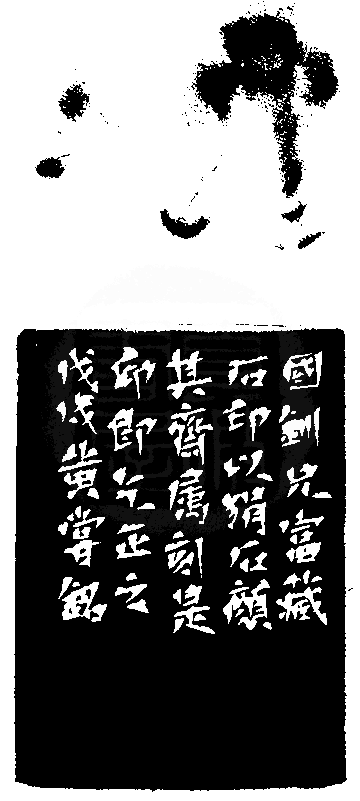 國釧兄富藏
石印以絹石顏
其齋属刻是
印即乞正之
戊戌黄嘗銘